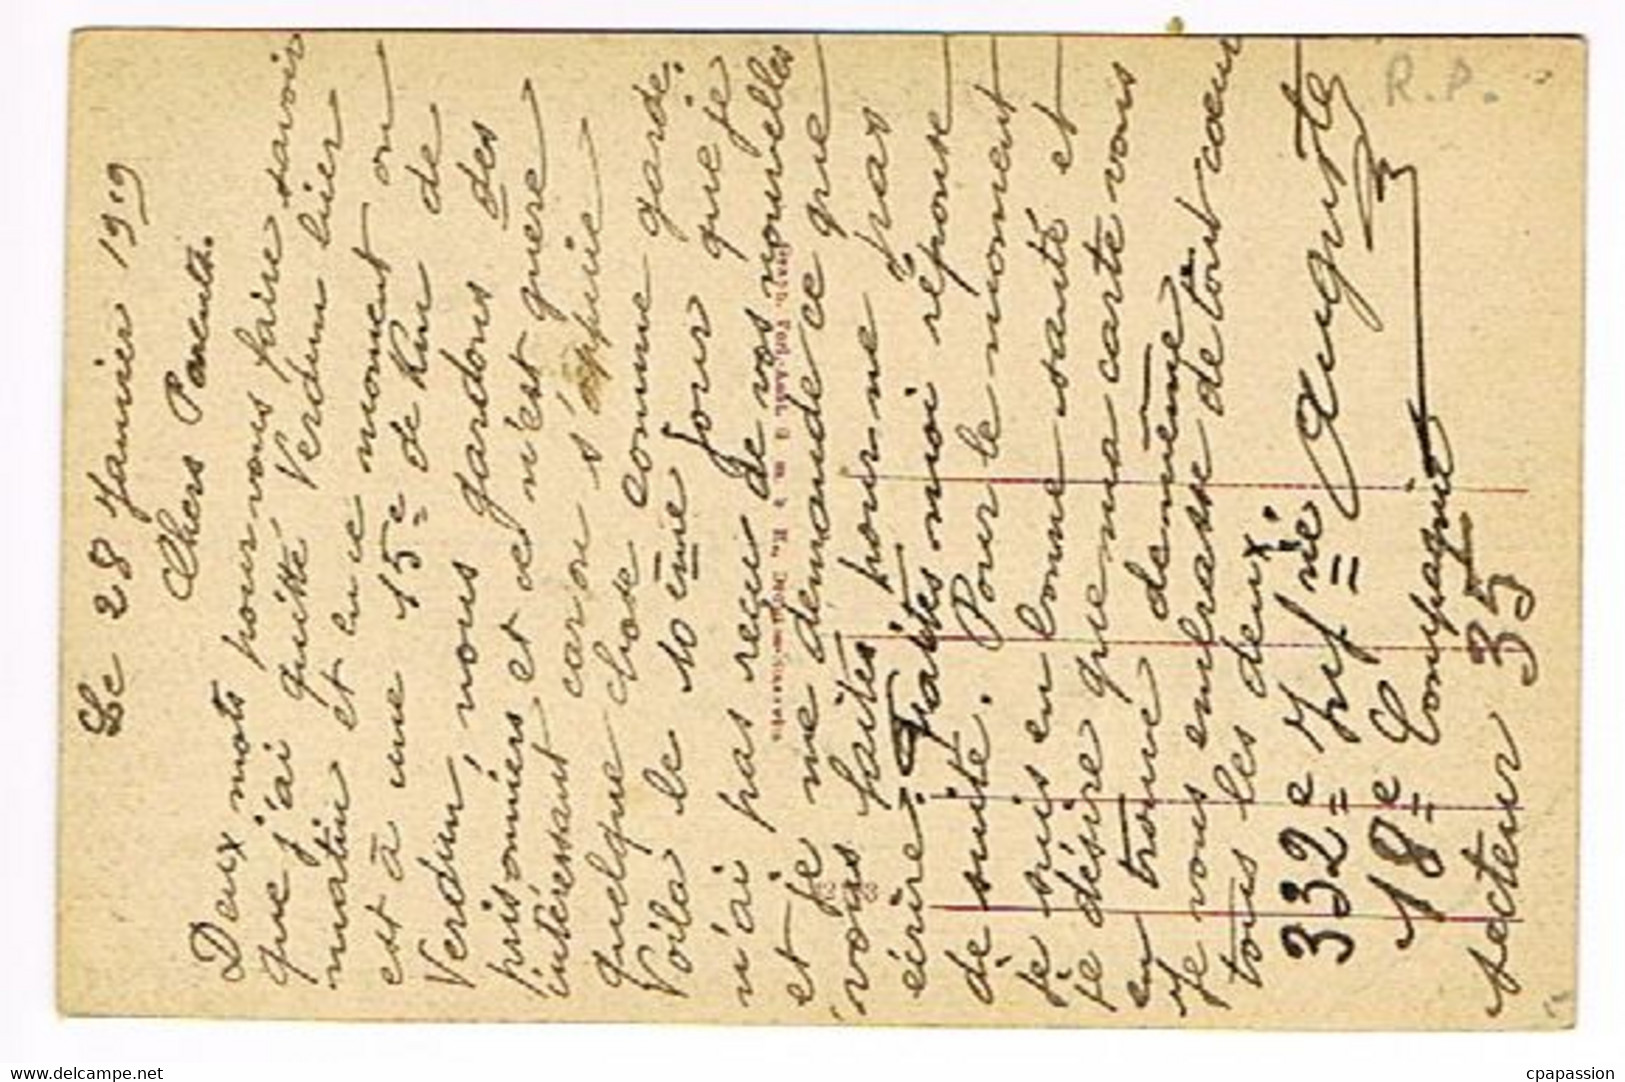 Le 28 Janvier 1919
Chers Parents.
Deux mots pour vous faire savoir
que j'ai quitté Verdun hier
matin et en ce moment on
est à une 15e de Km de
Verdun, nous gardons des
prisonniers et ce n'est guere
intéressant car on s'appuie
quelque chose comme garde.
Voila le 10ème jour que je
n'ai pas reçu de vos nouvelles
et je me demande ce que
vous faites pour me pas
écrire. Faites moi réponse
de suite. Pour le moment
je suis en bonne santé et
je désire que ma carte vous
en trouve de même
Je vous embrasse de tout cœur
tous les deux.
332e Inf rie Auguste
18e Compagnie
secteur 35
R.P.
delcampe.net
cpapassion